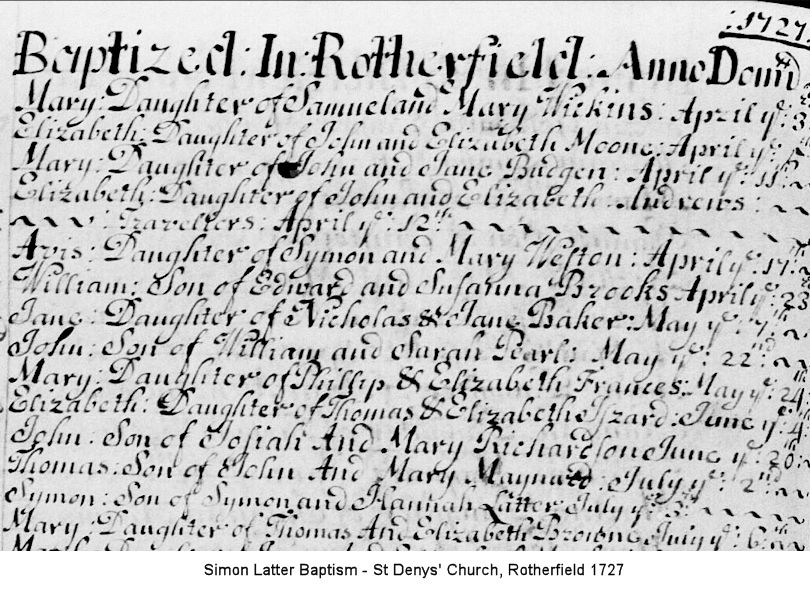 : 1727.
Baptized: In: Rotherfield: Anno Domi
Mary: Daughter of Samuel and Mary Wickins: April ye: 3
Elizabeth: Daughter of John and Elizabeth Moone: April ye:
Mary: Daughter of John and Jane Budgen: April ye: 11th
Elizabeth: Daughter of John and Elizabeth: Andrews:
: Travellers: April ye: 12th
Avis: Daughter of Symon and Mary Weston: April ye: 17th
William: Son of Edward and Susanna Brooks April ye: 23
Jane: Daughter of Nicholas & Jane Baker: May ye: 7th
John: Son of William and Sarah Pearls: May ye: 22th
Mary: Daughter of Phillip & Elizabeth Frances: May ye: 24th
Elizabeth: Daughter of Thomas & Elizabeth Izard: June ye: 4th
John: Son of Josiah And Mary Richardson June ye: 20:
Thomas: Son of John And Mary Maynard: July ye: 2nd
Symon: Son of Symon and Hannah Latter July ye 3:
Mary: Daughter of Thomas And Elizabeth Browne July ye: 6th
Simon Latter Baptism - St Denys' Church, Rotherfield 1727